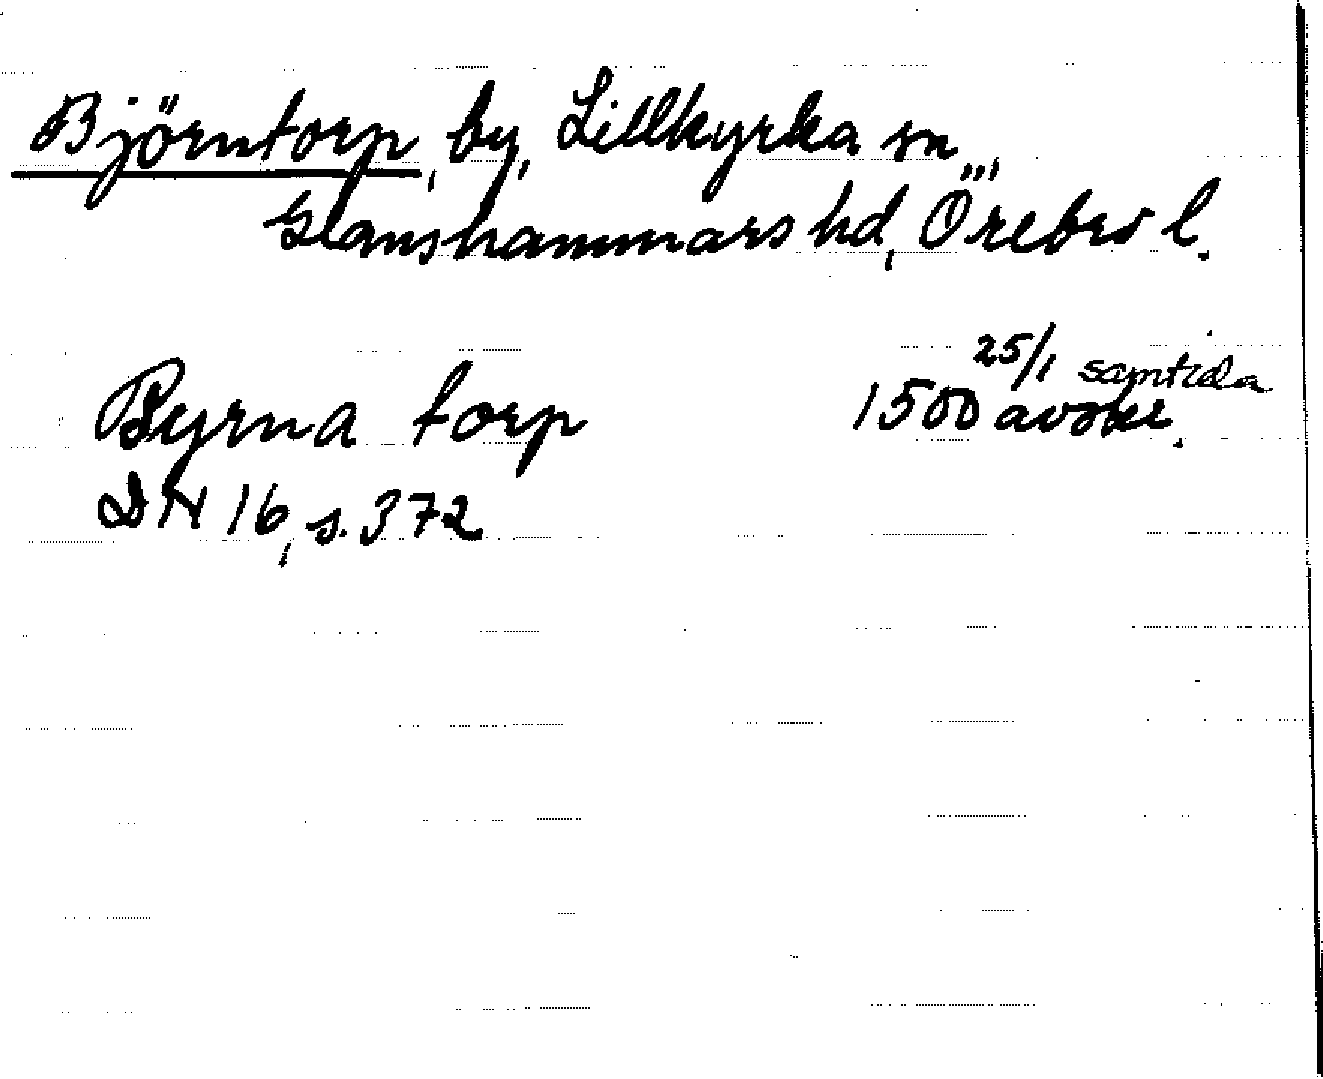 Björntorp, by, Lillkyrka sn,
Glanshammars hd, Örebro l.
Byrna torp 1500 25/1 samtida avskr.
DN 16, s. 372